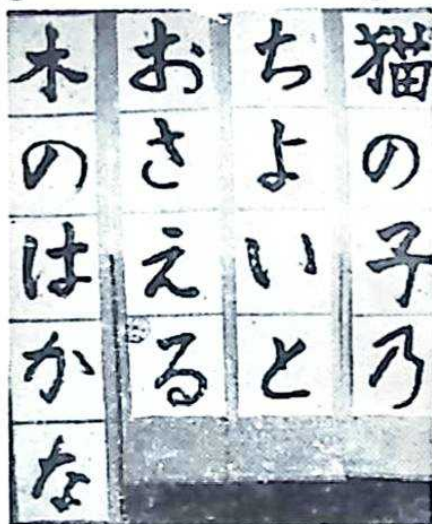 猫の子乃
ちよいと
おさえる
木のはかな